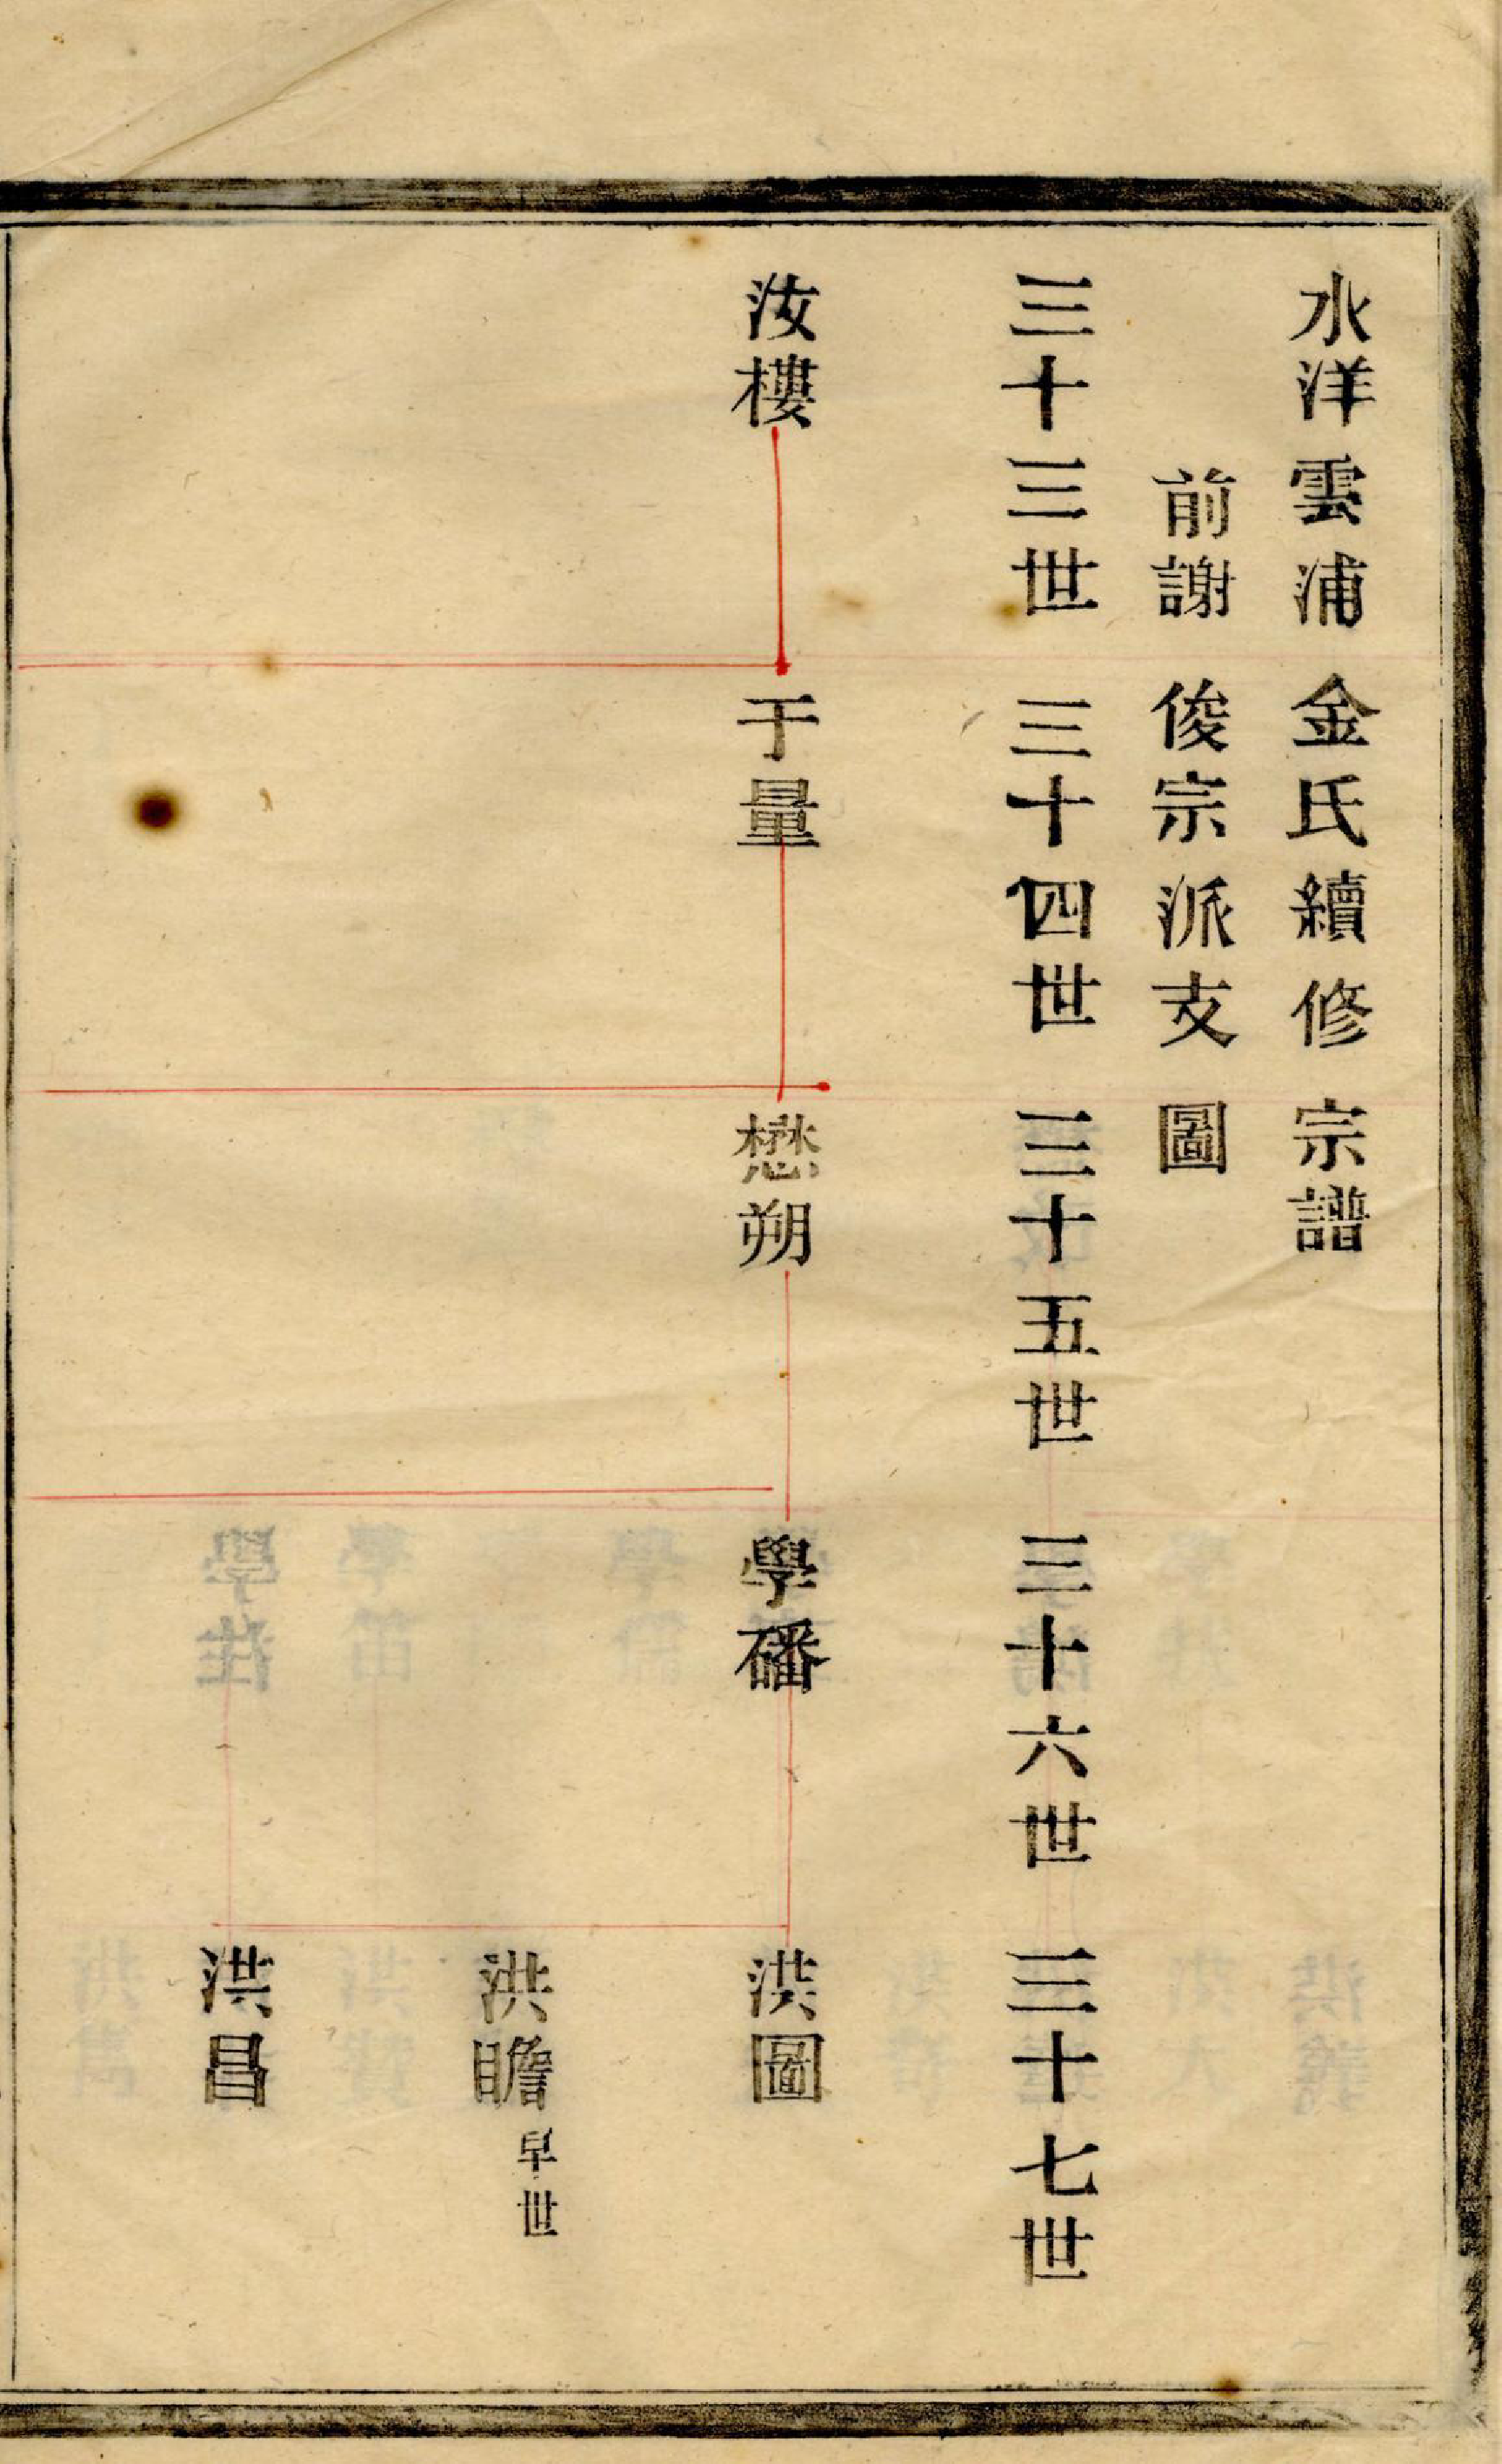 水洋雲浦金氏續修宗譜
前謝俊宗派支圖
三十三世 三十四世 三十五世 三十六世 三十七世
汝樓 于量 懋朔 學磻 洪圖
洪瞻早世
洪昌